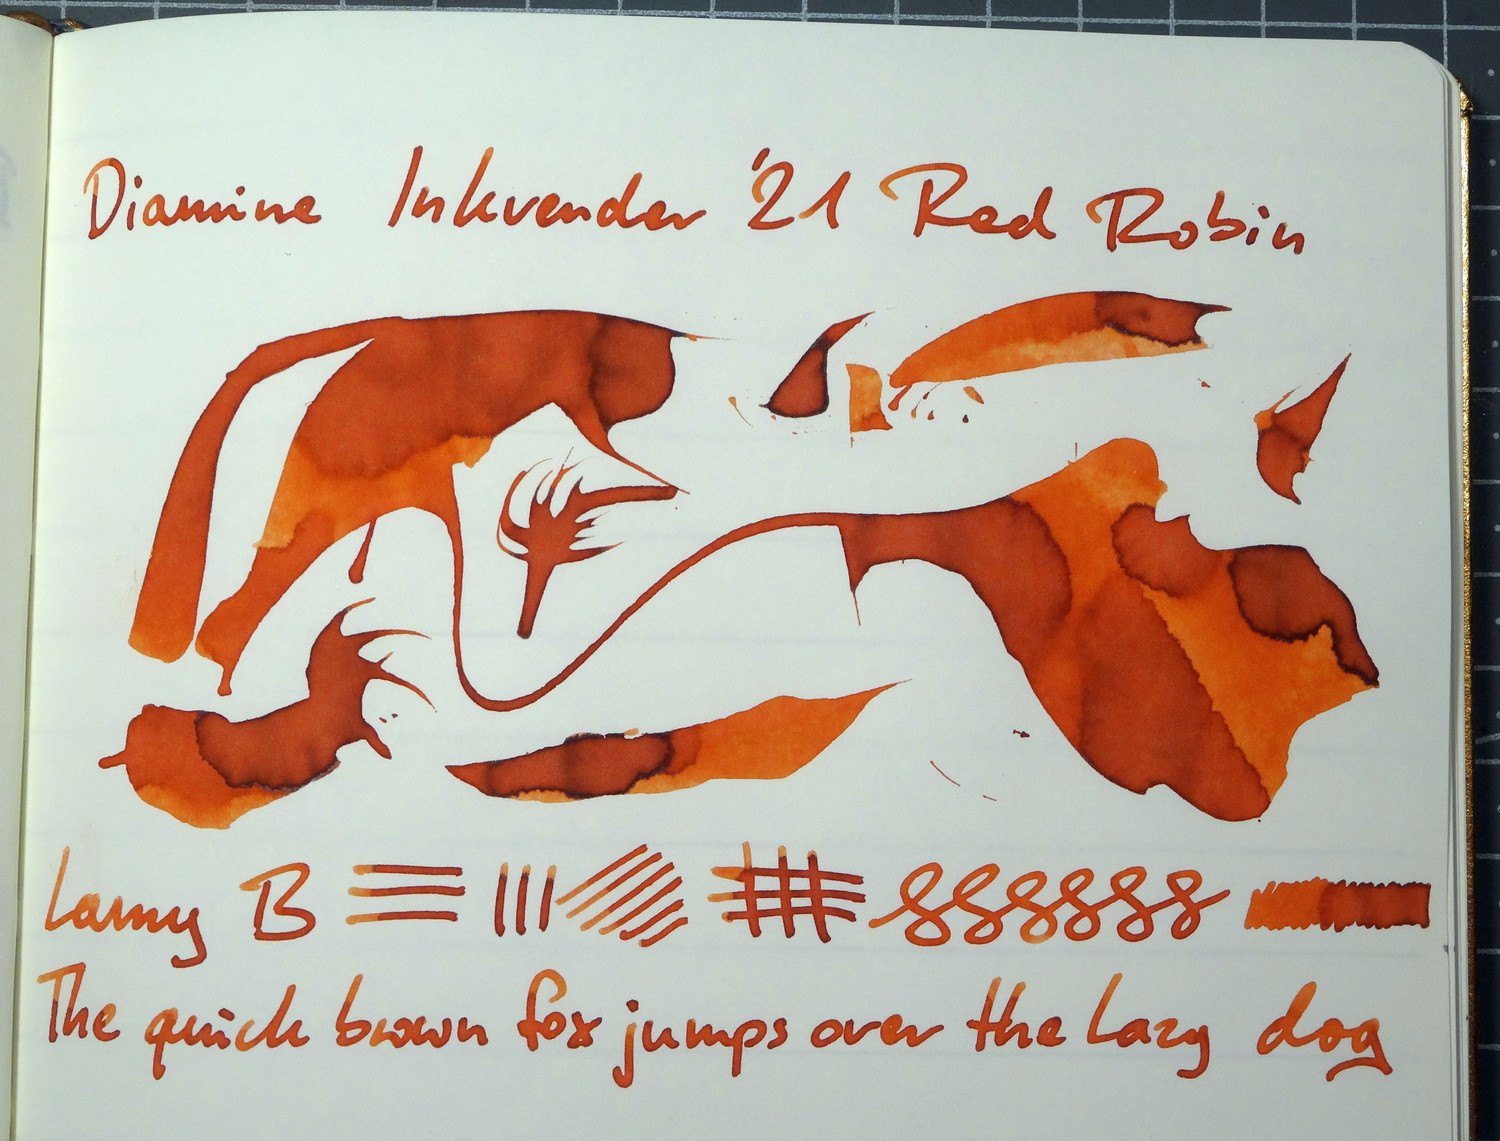 Diamine Inkvender '21 Red Robin
Lamy B
The quick brown fox jumps over the lazy dog